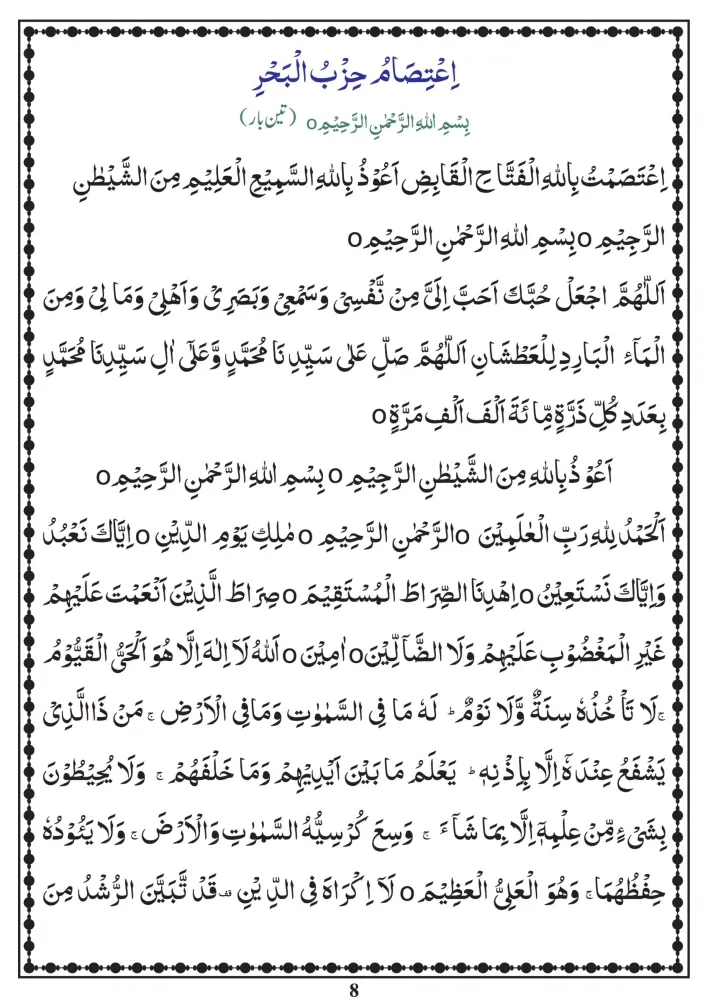 اِعْتِصَامُ حِزْبُ الْبَحْرِ
بِسْمِ اللهِ الرَّحْمٰنِ الرَّحِيْمِ o (تین بار)
اِعْتَصَمْتُ بِاللهِ الْفَتَّاحِ الْقَابِضِ اَعُوْذُ بِاللهِ السَّمِيْعِ الْعَلِيْمِ مِنَ الشَّيْطٰنِ
الرَّجِيْمِ o بِسْمِ اللهِ الرَّحْمٰنِ الرَّحِيْمِ o
اَللّٰهُمَّ اجْعَلْ حُبَّكَ اَحَبَّ اِلَيَّ مِنْ نَّفْسِيْ وَسَمْعِيْ وَبَصَرِيْ وَاَهْلِيْ وَمَا لِيْ وَمِنَ
الْمَآءِ الْبَارِدِ لِلْعَطْشَانِ اَللّٰهُمَّ صَلِّ عَلٰى سَيِّدِنَا مُحَمَّدٍ وَّعَلٰٓى اٰلِ سَيِّدِنَا مُحَمَّدٍ
بِعَدَدِ كُلِّ ذَرَّةٍ مِّائَةَ اَلْفَ اَلْفِ مَرَّةٍ o
اَعُوْذُ بِاللهِ مِنَ الشَّيْطٰنِ الرَّجِيْمِ o بِسْمِ اللهِ الرَّحْمٰنِ الرَّحِيْمِ o
اَلْحَمْدُ لِلهِ رَبِّ الْعٰلَمِيْنَ o الرَّحْمٰنِ الرَّحِيْمِ o مٰلِكِ يَوْمِ الدِّيْنِ o اِيَّاكَ نَعْبُدُ
وَاِيَّاكَ نَسْتَعِيْنُ o اِهْدِنَا الصِّرَاطَ الْمُسْتَقِيْمَ o صِرَاطَ الَّذِيْنَ اَنْعَمْتَ عَلَيْهِمْ
غَيْرِ الْمَغْضُوْبِ عَلَيْهِمْ وَلَا الضَّآلِّيْنَ o اٰمِيْنَ o اَللهُ لَآ اِلٰهَ اِلَّا هُوَ اَلْحَيُّ الْقَيُّوْمُ
ۚ لَا تَاْخُذُهٗ سِنَةٌ وَّلَا نَوْمٌ ؕ لَهٗ مَا فِي السَّمٰوٰتِ وَمَا فِي الْاَرْضِ ۚ مَنْ ذَا الَّذِيْ
يَشْفَعُ عِنْدَهٗٓ اِلَّا بِاِذْنِهٖ ؕ يَعْلَمُ مَا بَيْنَ اَيْدِيْهِمْ وَمَا خَلْفَهُمْ ۚ وَلَا يُحِيْطُوْنَ
بِشَيْءٍ مِّنْ عِلْمِهٖٓ اِلَّا بِمَا شَآءَ ۚ وَسِعَ كُرْسِيُّهُ السَّمٰوٰتِ وَالْاَرْضَ ۚ وَلَا يَئُوْدُهٗ
حِفْظُهُمَا ۚ وَهُوَ الْعَلِيُّ الْعَظِيْمَ o لَآ اِكْرَاهَ فِي الدِّيْنِ ۙ قَدْ تَّبَيَّنَ الرُّشْدُ مِنَ
8